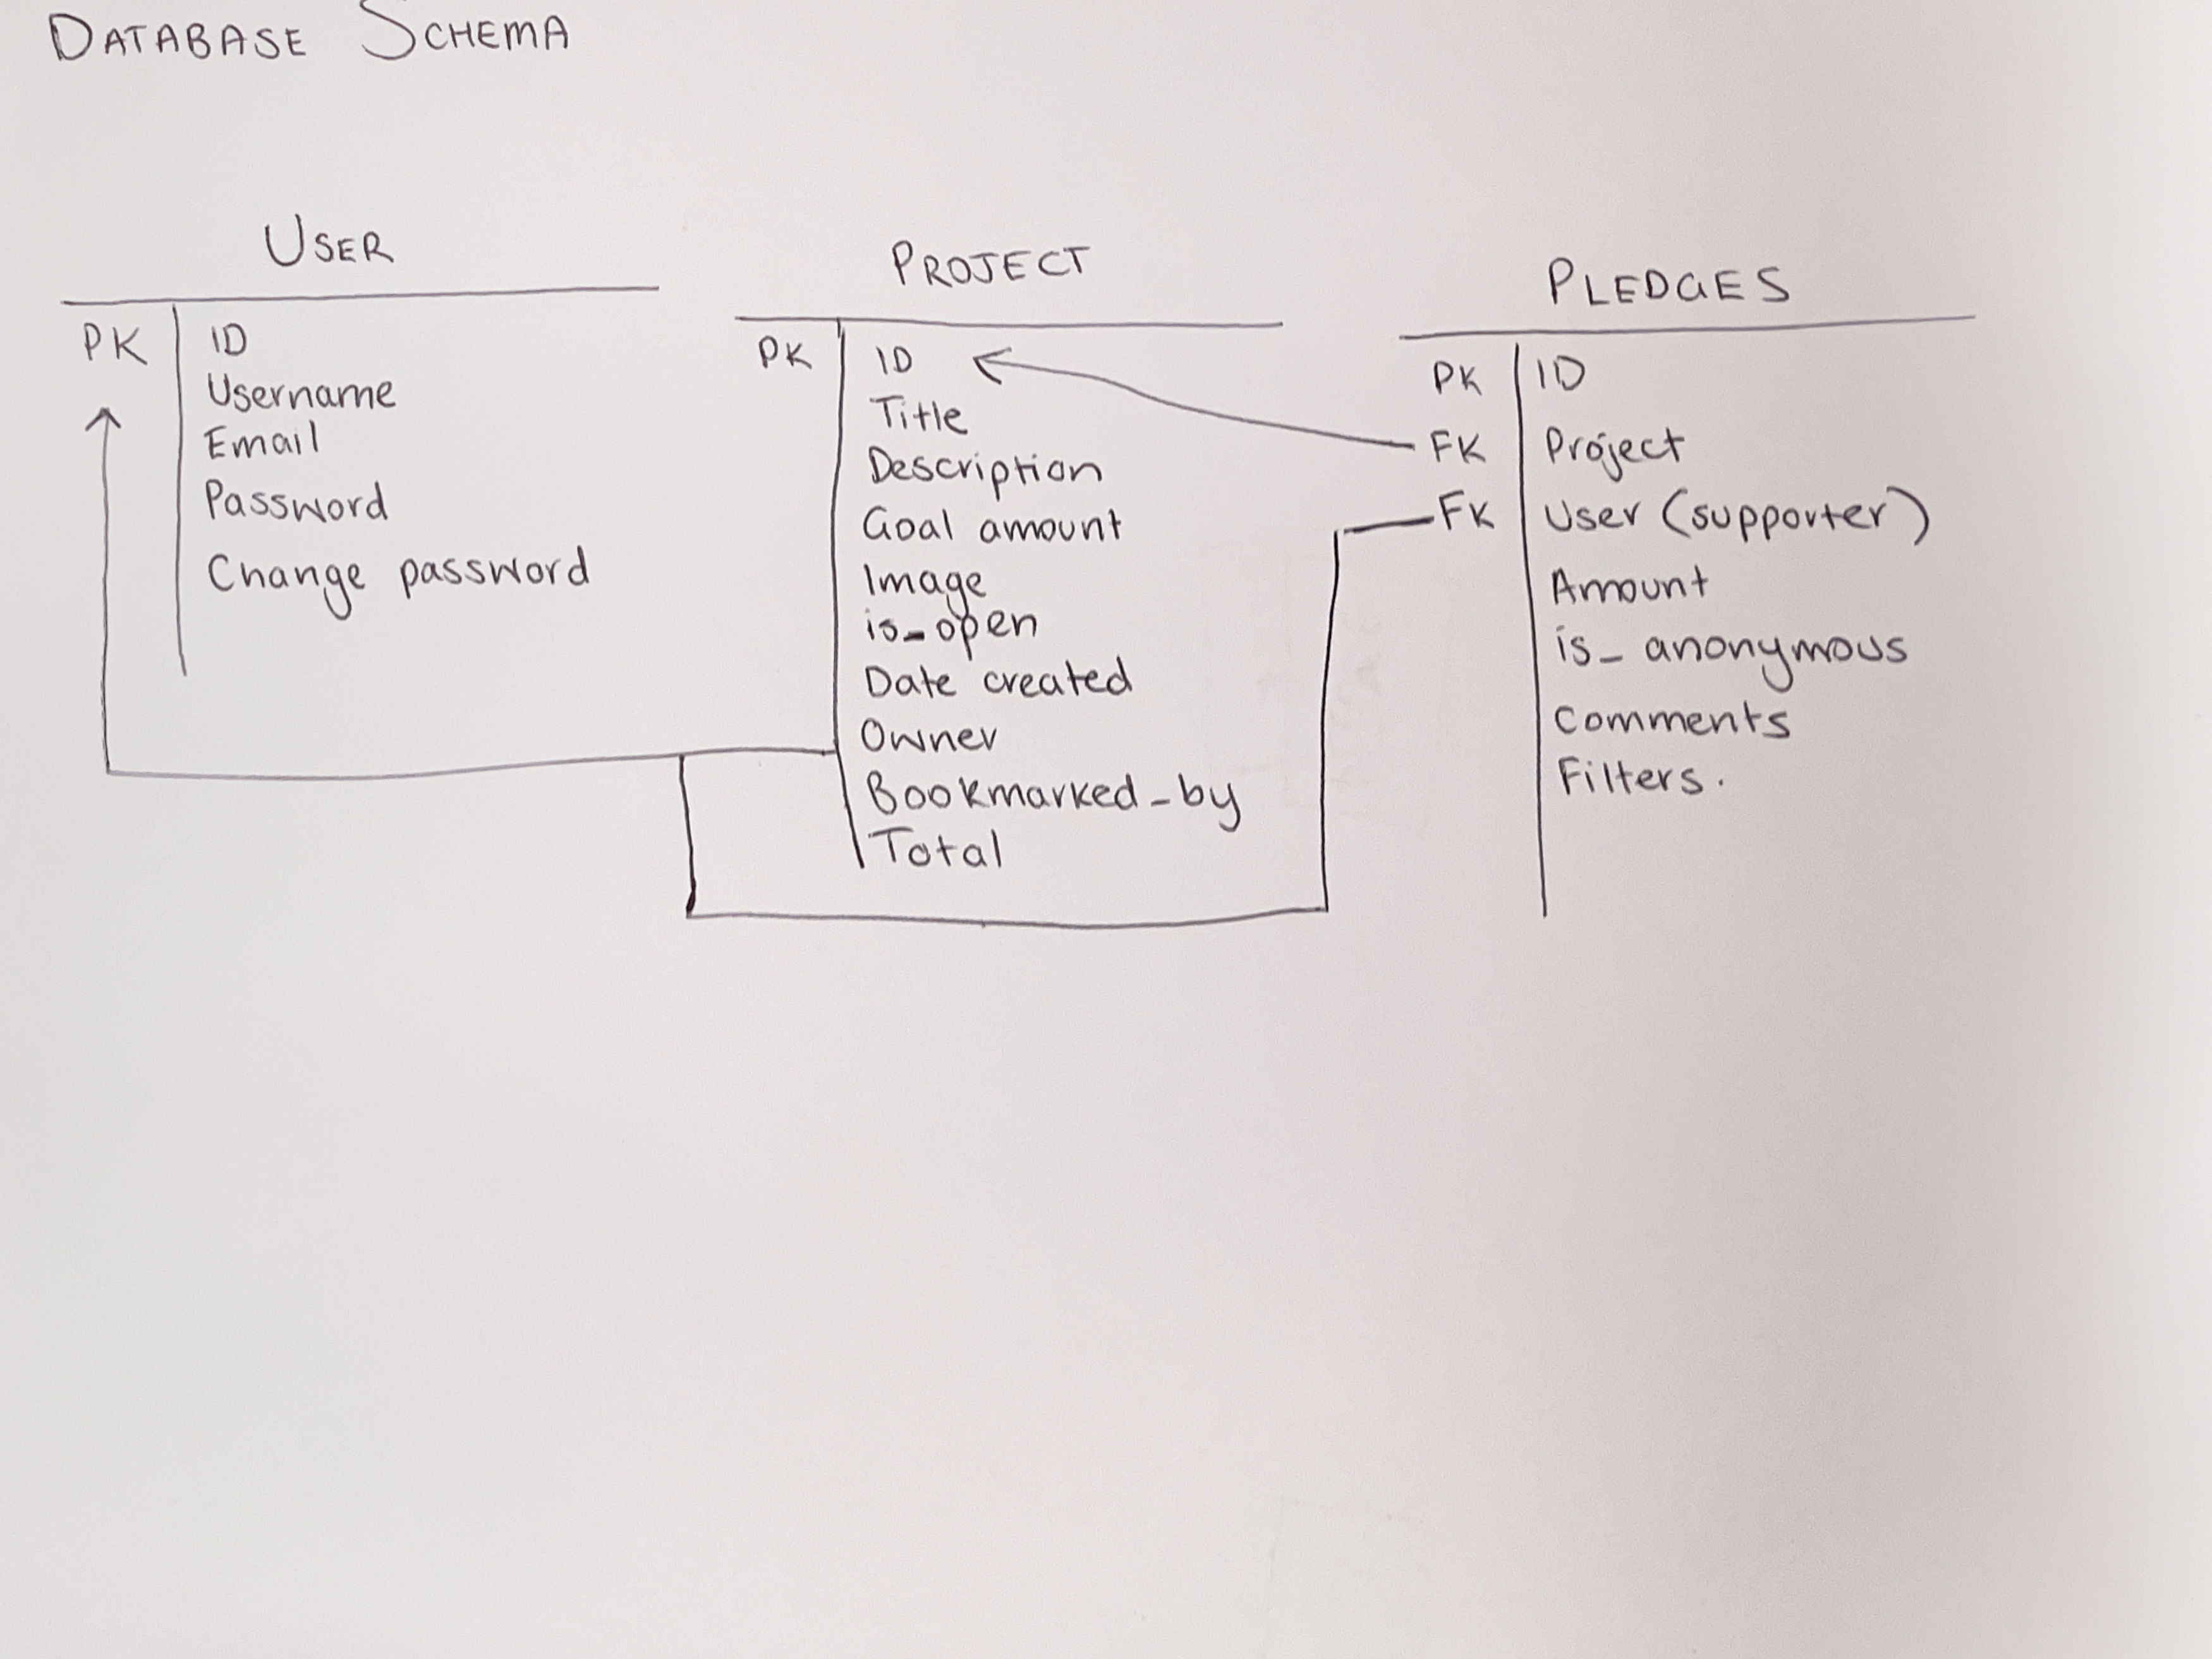 DATABASE SCHEMA
USER
PK ID
Username
Email
Password
Change password
PROJECT
PK ID
Title
Description
Goal amount
Image
is_open
Date created
Owner
Bookmarked_by
Total
PLEDGES
PK ID
FK Project
FK User (supporter)
Amount
is_anonymous
Comments
Filters.